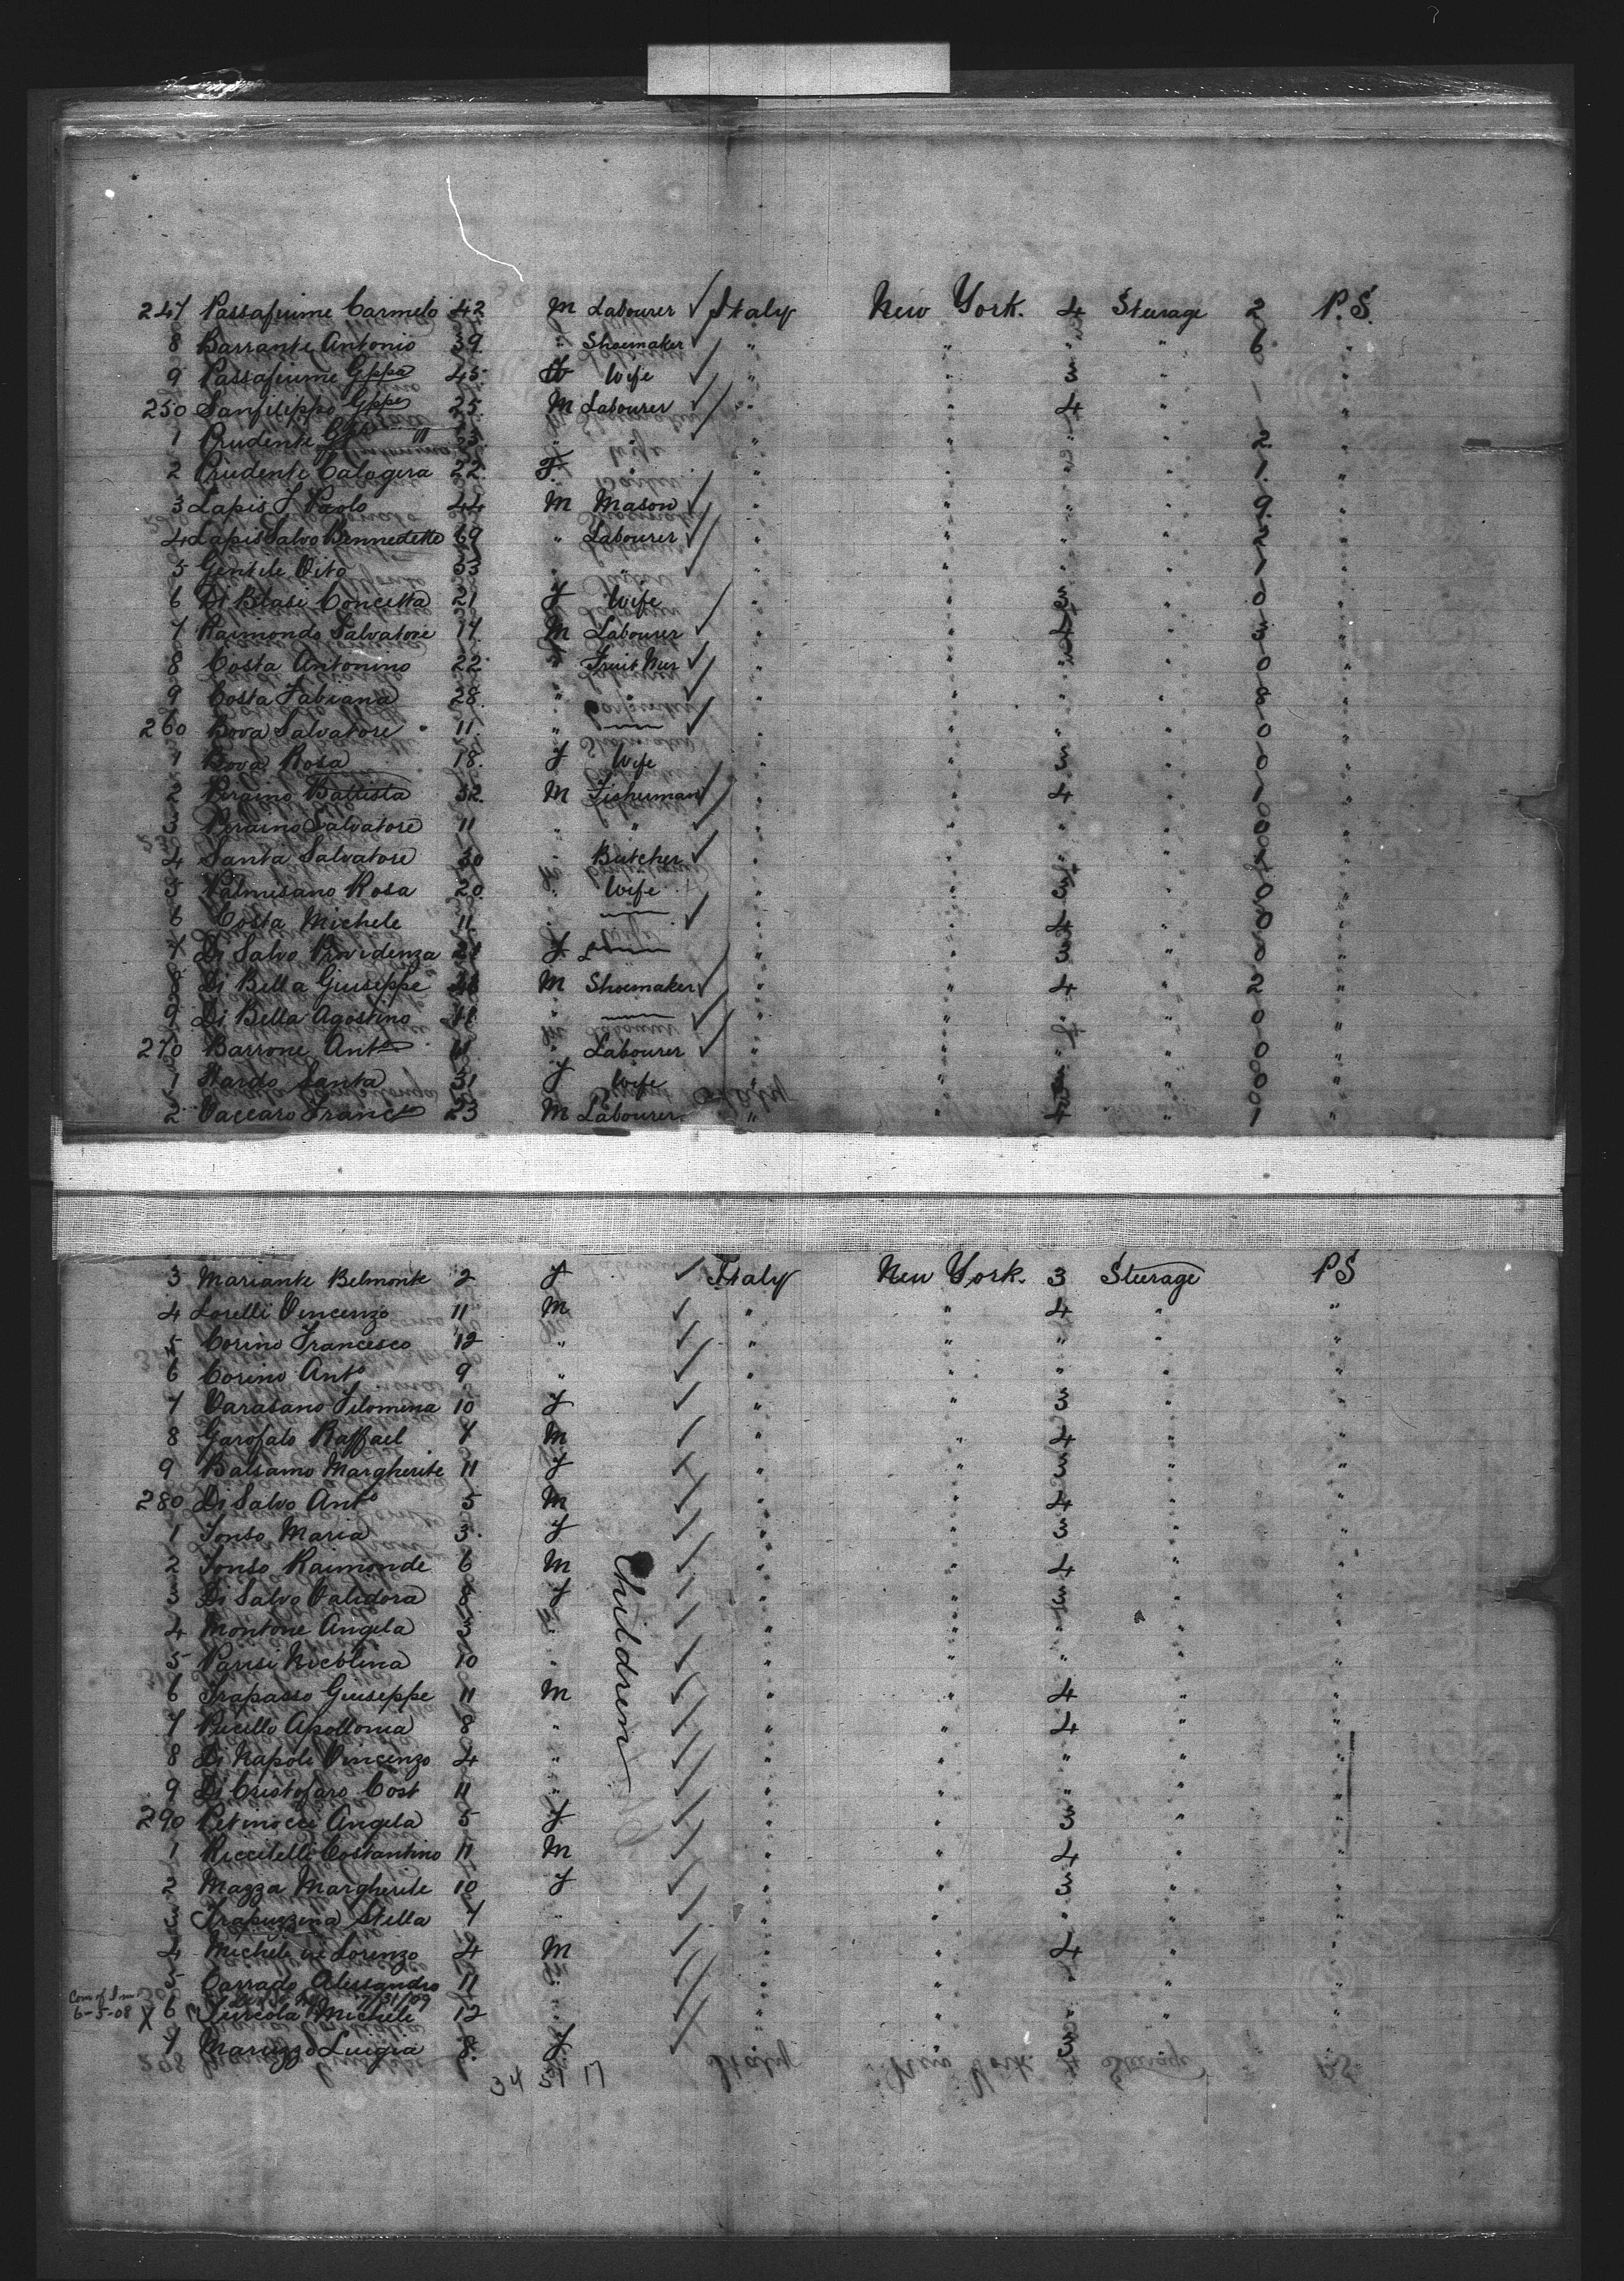 247 Passafiume Carmelo 42 M Labourer ✓ Italy New York. 4 Steerage 2 P.S.
8 Barrante Antonio 39. " Shoemaker ✓ " " " " 6 "
9 Passafiume Gppa 45 Wife ✓ " " 3 " 1 "
250 Sanfilippo Gppe 25. M Labourer ✓ " " 4 " 1 "
1 Prudente 33. " " ✓ " " " " 2 "
2 Prudente Calogera 22. F. " " " " 1. "
3 Lapis S Paolo 44 M Mason ✓ " " " " 9. "
4 Lapis Salvo Bennedetto 69 " Labourer ✓ " " " " "
5 Gentile Vito 33 " " ✓ " " " " 1 "
6 Di Blasi Concetta 21 F Wife " " 3 " 0 "
7 Raimondo Salvatore 17. M Labourer ✓ " " 4 " 3 "
8 Costa Antonino 22 " Fruit ✓ " " " " 0 "
9 Costa Fabiana 28. " ✓ " " " " 8 "
260 Bova Salvatore 11. " — ✓ " " " " 0 "
1 Bova Rosa 18. F Wife " " 3 " 0 "
2 Peraino Battista 32. M Fisherman ✓ " " 4 " 1 "
3 Peraino Salvatore 11 " " ✓ " " " " 0 "
4 Santa Salvatore 30 " Butcher ✓ " " " " "
5 Palmisano Rosa 20. " Wife " " 3 " 0 "
6 Costa Michele 11. " — ✓ " " 4 " 0 "
7 Di Salvo Providenza 21 F — " " 3 " 0 "
8 Di Bella Giuseppe M Shoemaker ✓ " " 4 " 2 "
9 Di Bella Agostino 11. " — ✓ " " " " 0 "
270 Barrone Anto " Labourer ✓ " " " " 0 "
1 Nardo Santa 31 F Wife " " " 0 "
2 Vaccaro Franc 23 M Labourer " " 4 " 1 "
3 Mariante Belmonte 2 F ✓ Italy New York. 3 Steerage P.S
4 Lorelli Vincenzo 11 M ✓ " " 4 " "
5 Corino Francesco 12 " ✓ " " " " "
6 Corino Anto 9 " ✓ " " " " "
7 Varasano Filomena 10 F ✓ " " 3 " "
8 Garofalo Raffael 7 M ✓ " " 4 " "
9 Balsamo Margherite 11 F ✓ " " 3 " "
280 Di Salvo Anto 5 M ✓ " " 4 " "
1 Fonso Maria 3. F ✓ " " 3 " "
2 Fonso Raimonde 6 M ✓ " " 4 " "
3 Di Salvo Validora 8 F ✓ " " 3 " "
4 Montone Angela 3 " ✓ " " " " "
5 Parisi Nicolina 10 " ✓ " " " " "
6 Trapasso Giuseppe 11 M ✓ " " 4 " "
7 Pucillo Apollonia 8 " ✓ " " 4 " "
8 Di Napoli Vincenzo 4 " ✓ " " " " "
9 Di Cristofaro Cost 11 " ✓ " " " " "
290 Petinocci Angela 5 F ✓ " " 3 " "
1 Riccitelli Costantino 11 M ✓ " " 4 " "
2 Mazza Margherite 10 F ✓ " " 3 " "
3 Trapuzzina Stella 7 " ✓ " " " " "
4 Michele di Lorenzo 4 M ✓ " " 4 " "
5 Corrado Alessandro 11 " ✓ " " " " "
7/31/09
6-5-08 X 6 Turcola Michele 12 " ✓ " " " " "
7 Maruzzo Luigia 8. F ✓ " " 3 " "
Children
34 17